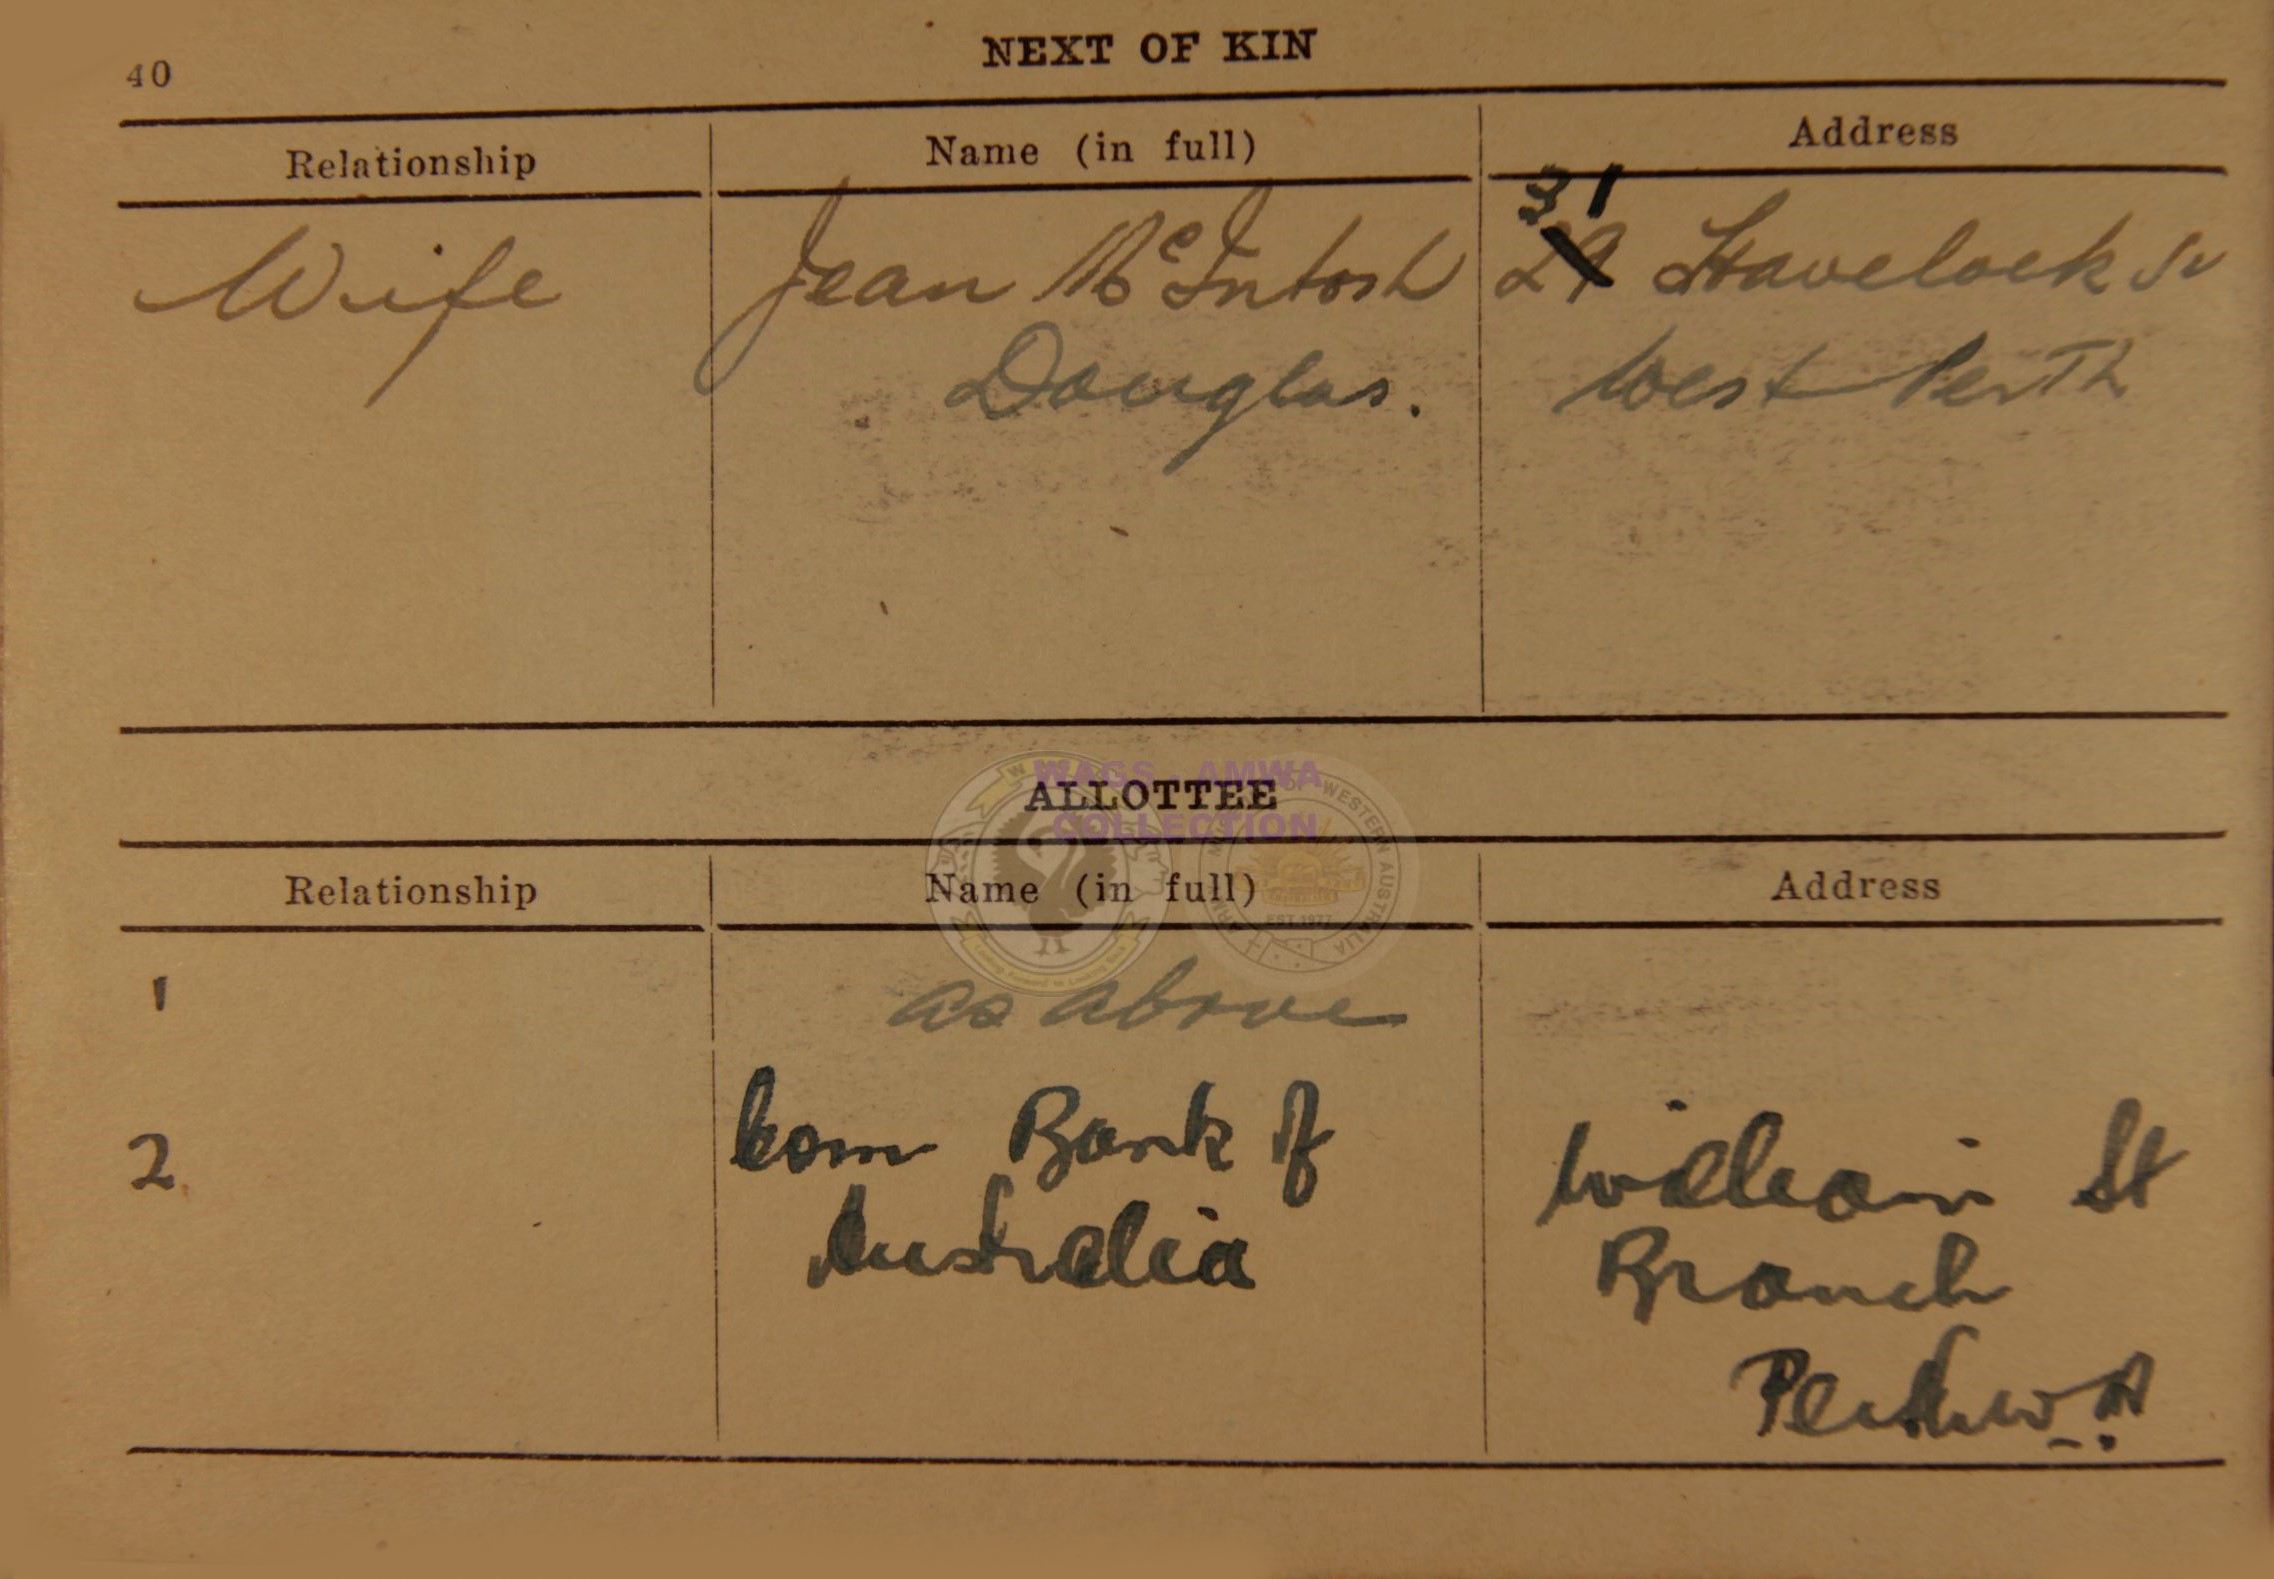 40
NEXT OF KIN
Relationship Name (in full) Address
31
Wife Jean McIntosh 29 Havelock St
Douglas. West Perth
WAGS AMWA
ALLOTTEE
COLLECTION
Relationship Name (in full) Address
EST 1977
1 as above
2 Com Bank of William St
Australia Branch
Perth W.A.